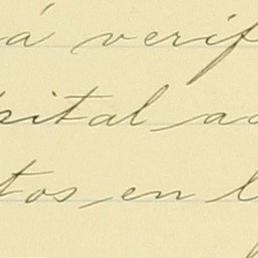 á verif
pital, ac
tos, en l